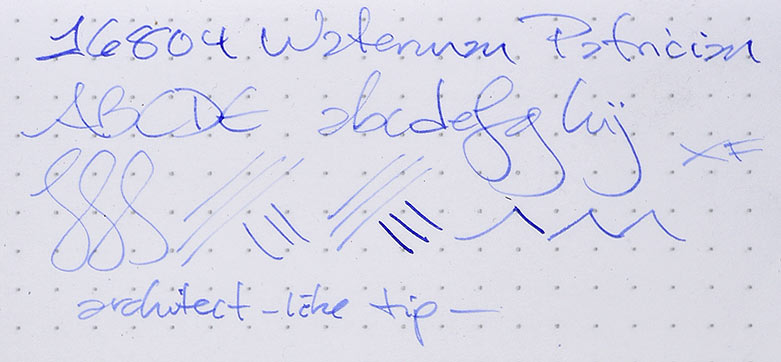 16804 Waterman Patrician
ABCDE abcdefg hij
XF
architect-like tip —